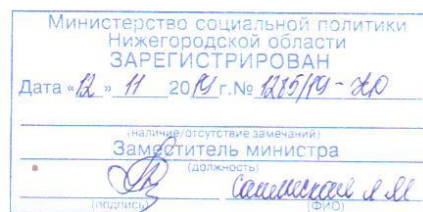 Министерство социальной политики
Нижегородской области
ЗАРЕГИСТРИРОВАН
Дата «12» 11 2019 г. № 1285/19 -
(наличие/отсутствие замечаний)
Заместитель министра
(должность)
(подпись) (ФИО)